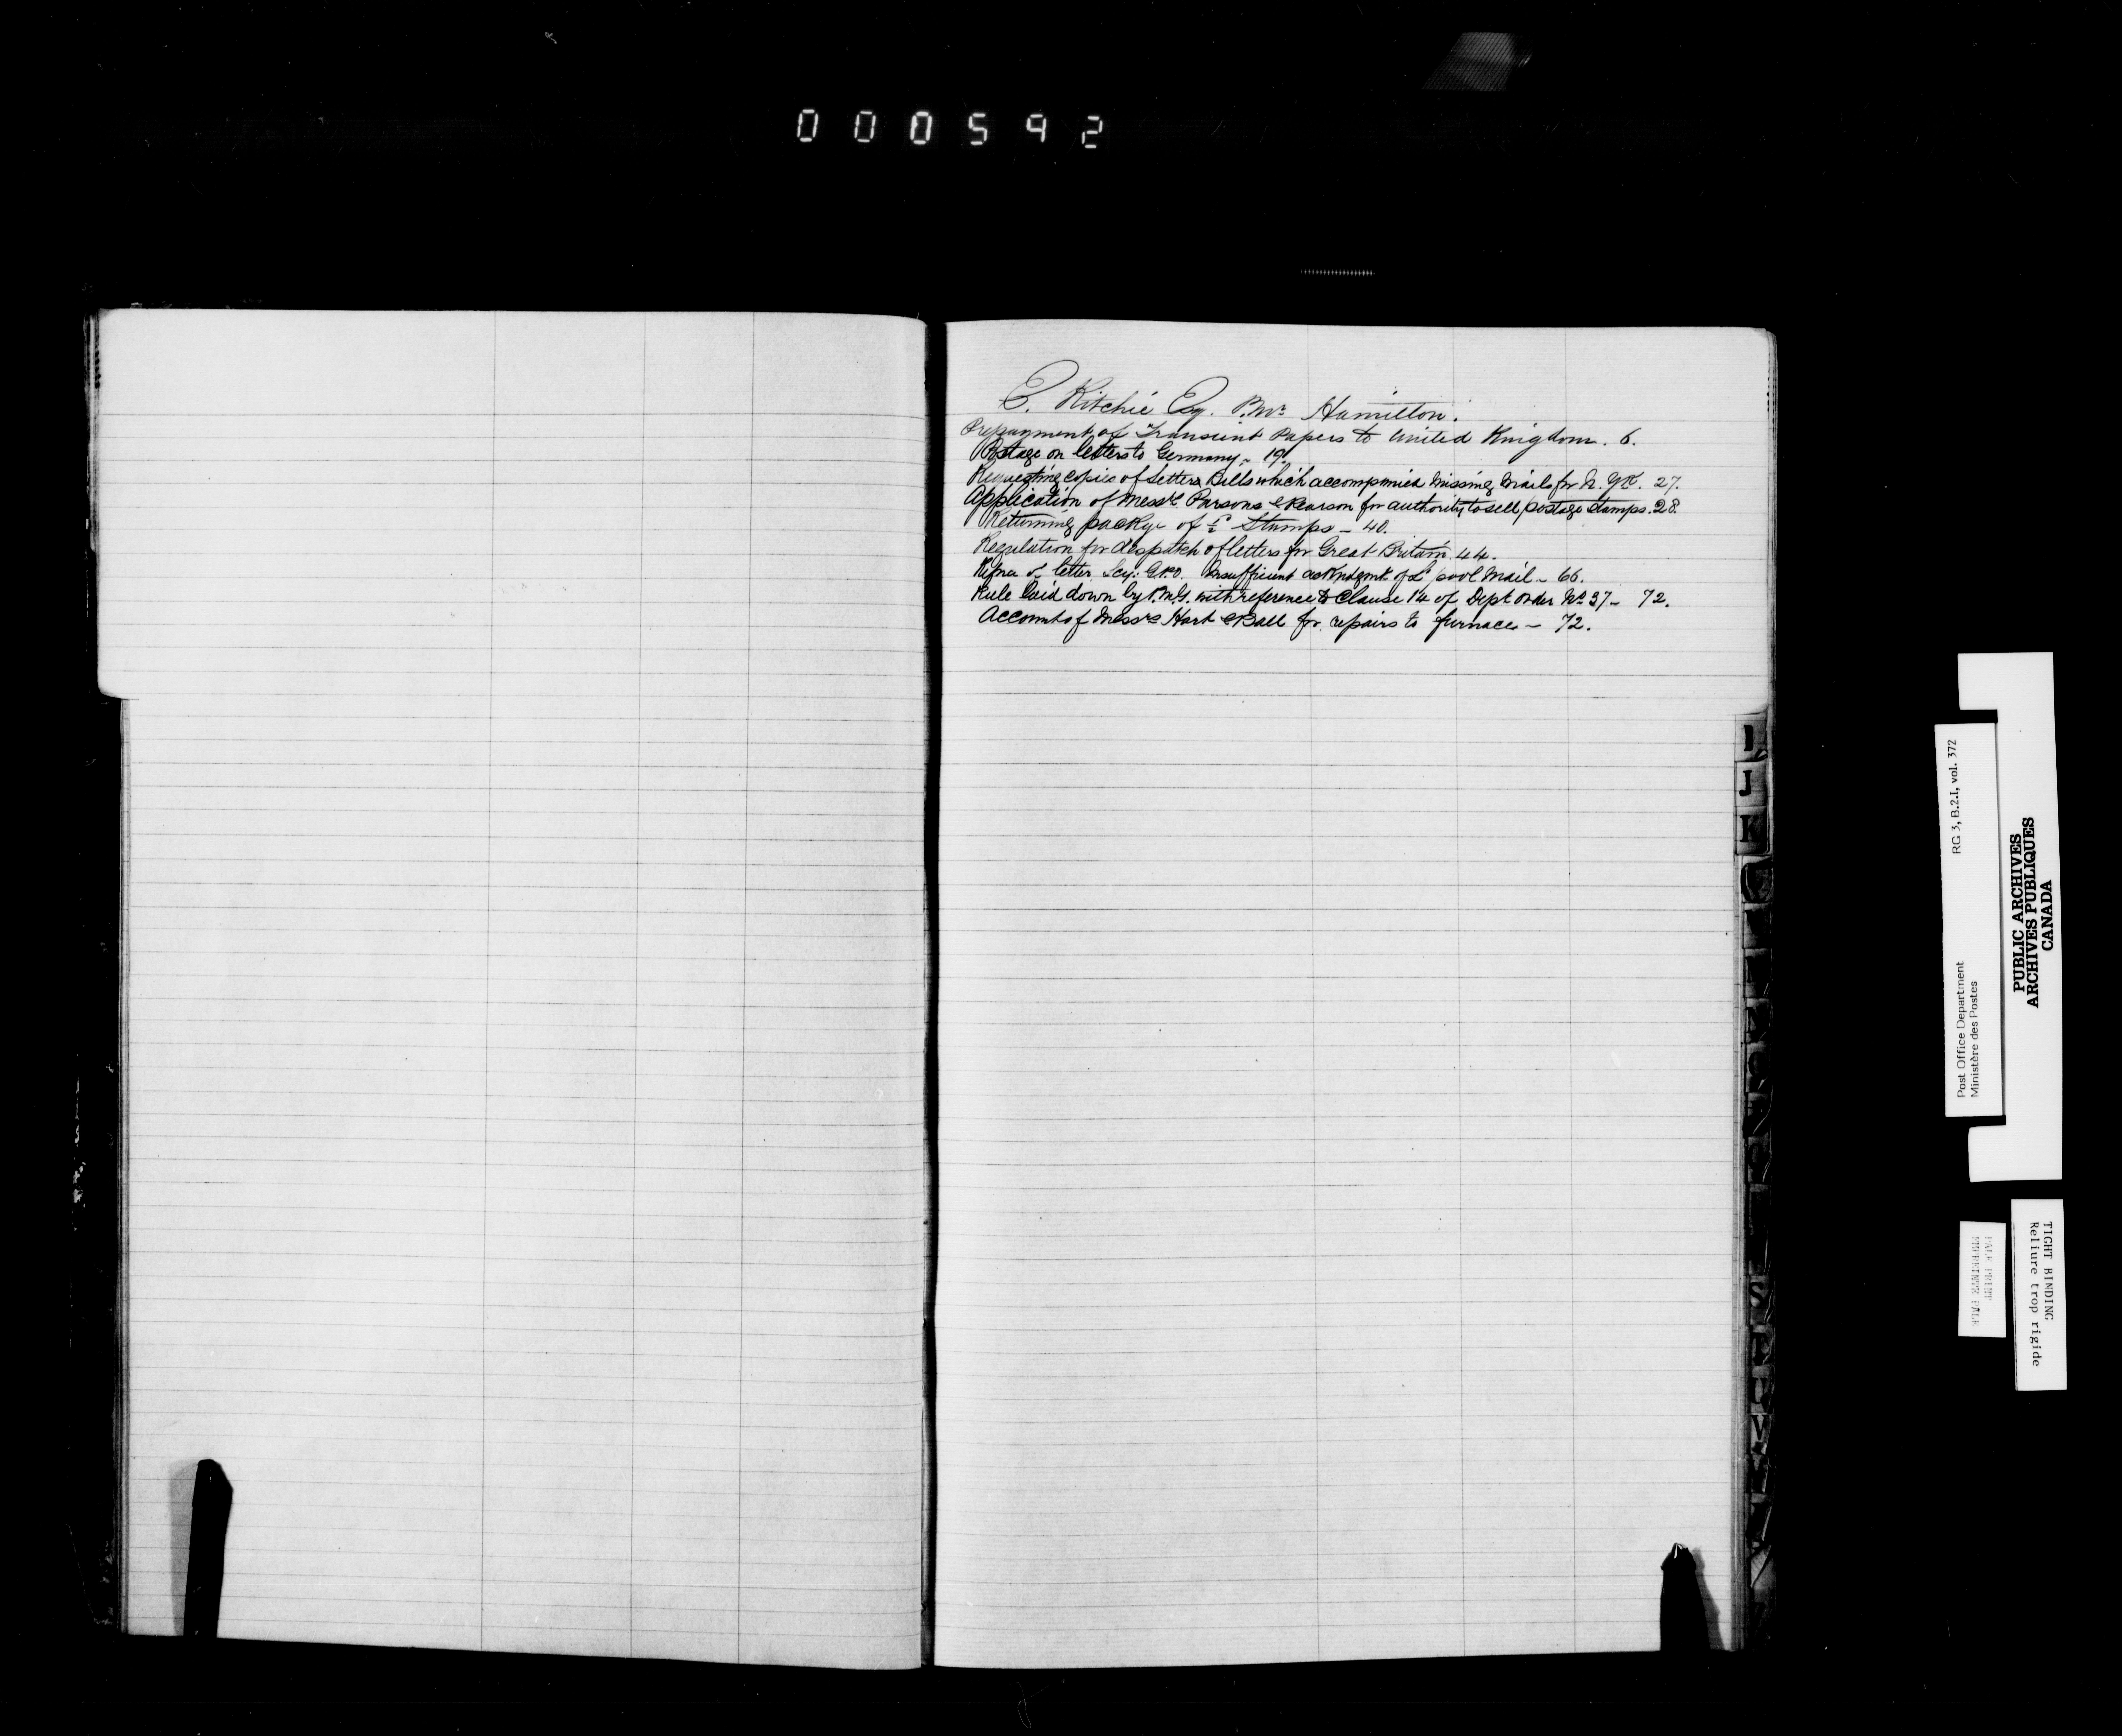 000592
E. Ritchie Esq. P.Mr. Hamilton.
Prepayment of Transient Papers to United Kingdom. 6.
Postage on letters to Germany - 19.
Requesting copies of Letter Bills which accompanied missing Mails for N. Yk. 27.
Application of Messrs Parsons & Pearson for authority to sell postage stamps. 28.
Returning packge of Stamps - 40.
Regulation for despatch of letters for Great Britain. 44.
of letter Secy: G.P.O. Insufficient of L'pool Mail - 66.
Rule laid down by P.M.G. with reference to Clause 14 of Dept Order No 37 - 72.
Account of Messrs Hart & Ball for repairs to furnaces - 72.
I
J
K
V
Post Office Department RG 3, B.2.I, vol. 372
Ministère des Postes
PUBLIC ARCHIVES
ARCHIVES PUBLIQUES
CANADA
TIGHT BINDING
Reliure trop rigide